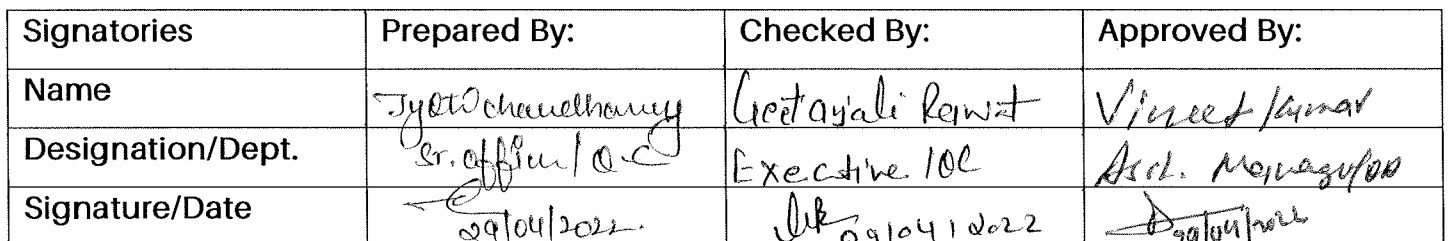 Signatories Prepared By: Checked By: Approved By:
Name Jyoti chaudhary Geetanjali Rawat Vineet Kumar
Designation/Dept. Sr. officer/Q.C Executive/QC Asst. Manager/
Signature/Date 29/04/2022. 29/04/2022 29/04/2022